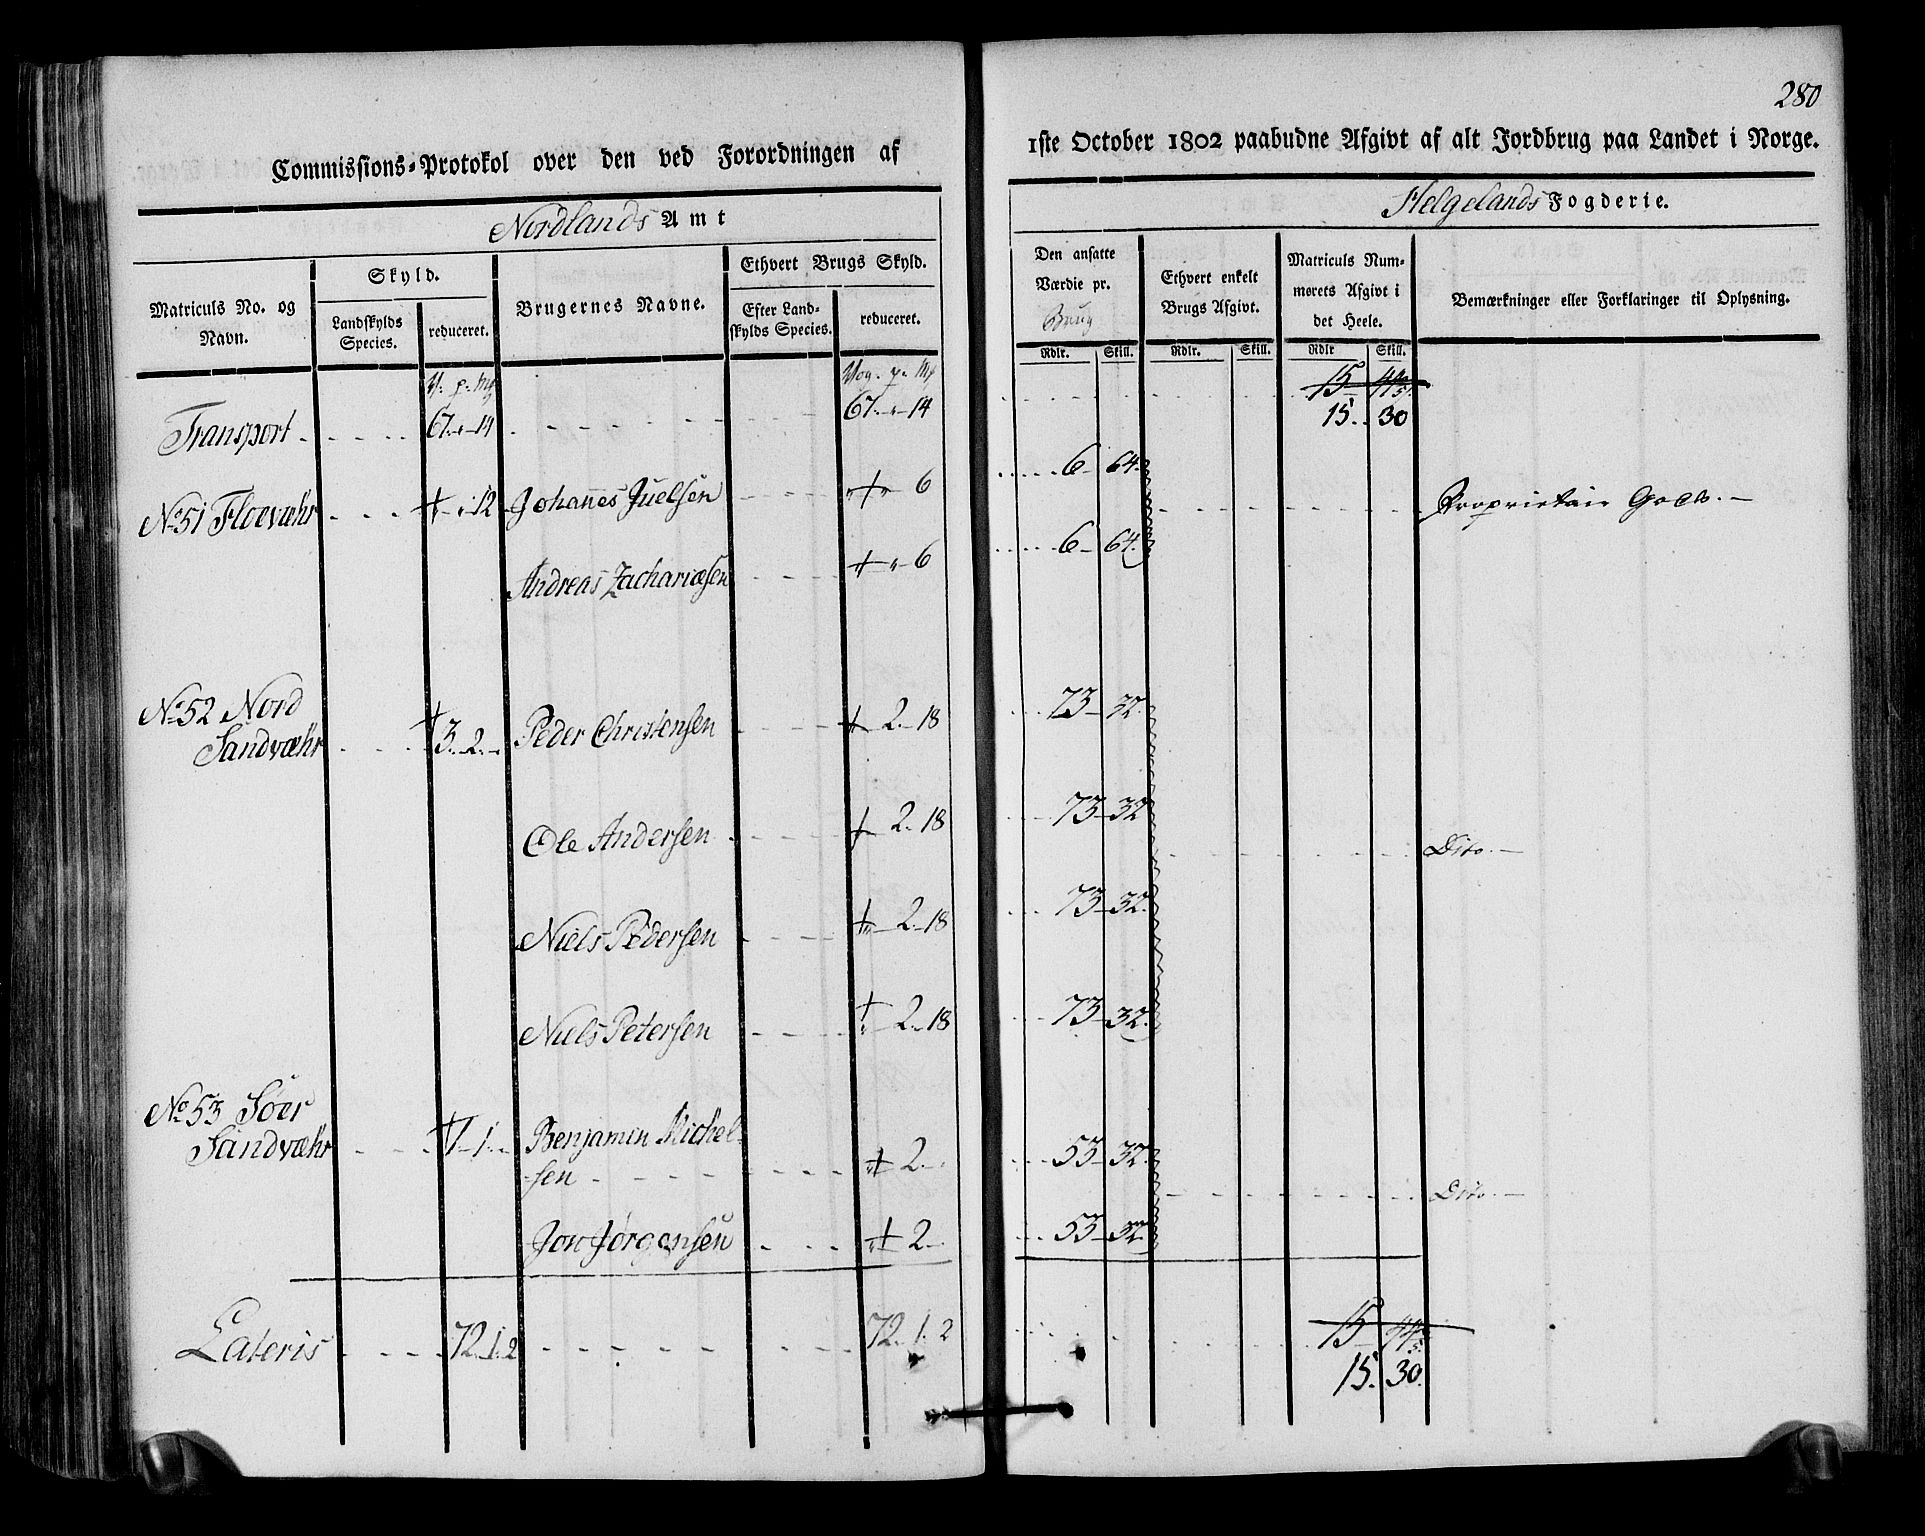 280
Commissions-Protokol over den ved Forordningen af
1ste October 1802 paabudne Afgivt af alt Jordbrug paa Landet i Norge.
Nordlands Amt
Helgelands Fogderie.
Matriculs No. og Navn.
Skyld.
Landskylds Species.
reduceret.
Brugernes Navne.
Ethvert Brugs Skyld.
Efter Landskylds Species.
reduceret.
Den ansatte Værdie pr. Brug
Ethvert enkelt Brugs Afgivt.
Matriculs Nummerets Afgivt i det Heele.
Bemærkninger eller Forklaringer til Oplysning.
Rdlr. Skill. Rdlr. Skill. Rdlr Skill.
V. p. Mk Vog. p. Mk
Transport 67 - 14 67 - 14 15 44 15. 30
No 51 Floevæhr - 12 Johannes Juelsen - 6 6 64. Proprietair Gods.
Andreas Zachariæsen - 6 6 64.
No 52 Nord
Sandvæhr 3. 2. Peder Christensen 2. 18 73 32.
Ole Andersen 2. 18 73 32 Dito.
Niels Pedersen 2. 18 73 32.
Niels Petersen 2. 18 73 32.
No 53 Söer
Sandvæhr 1. 1. Benjamin Michel-
sen 2. 53 32. Dito.
Jon Jørgensen 2. 53 32.
Lateris 72. 1. 2 72. 1. 2 15 44
15. 30.